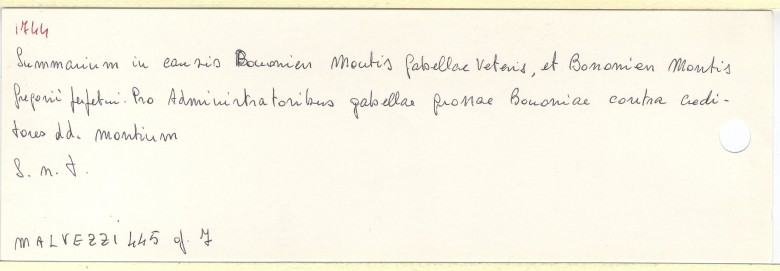 1744
Summarium in causis Bononien Montis Gabellae Veteris, et Bononien Montis
Gregorii perpetui. Pro Administratoribus gabellae grossae Bononiae contra credi-
tores dd. montium
S. n. t.
MALVEZZI 445 of. 7